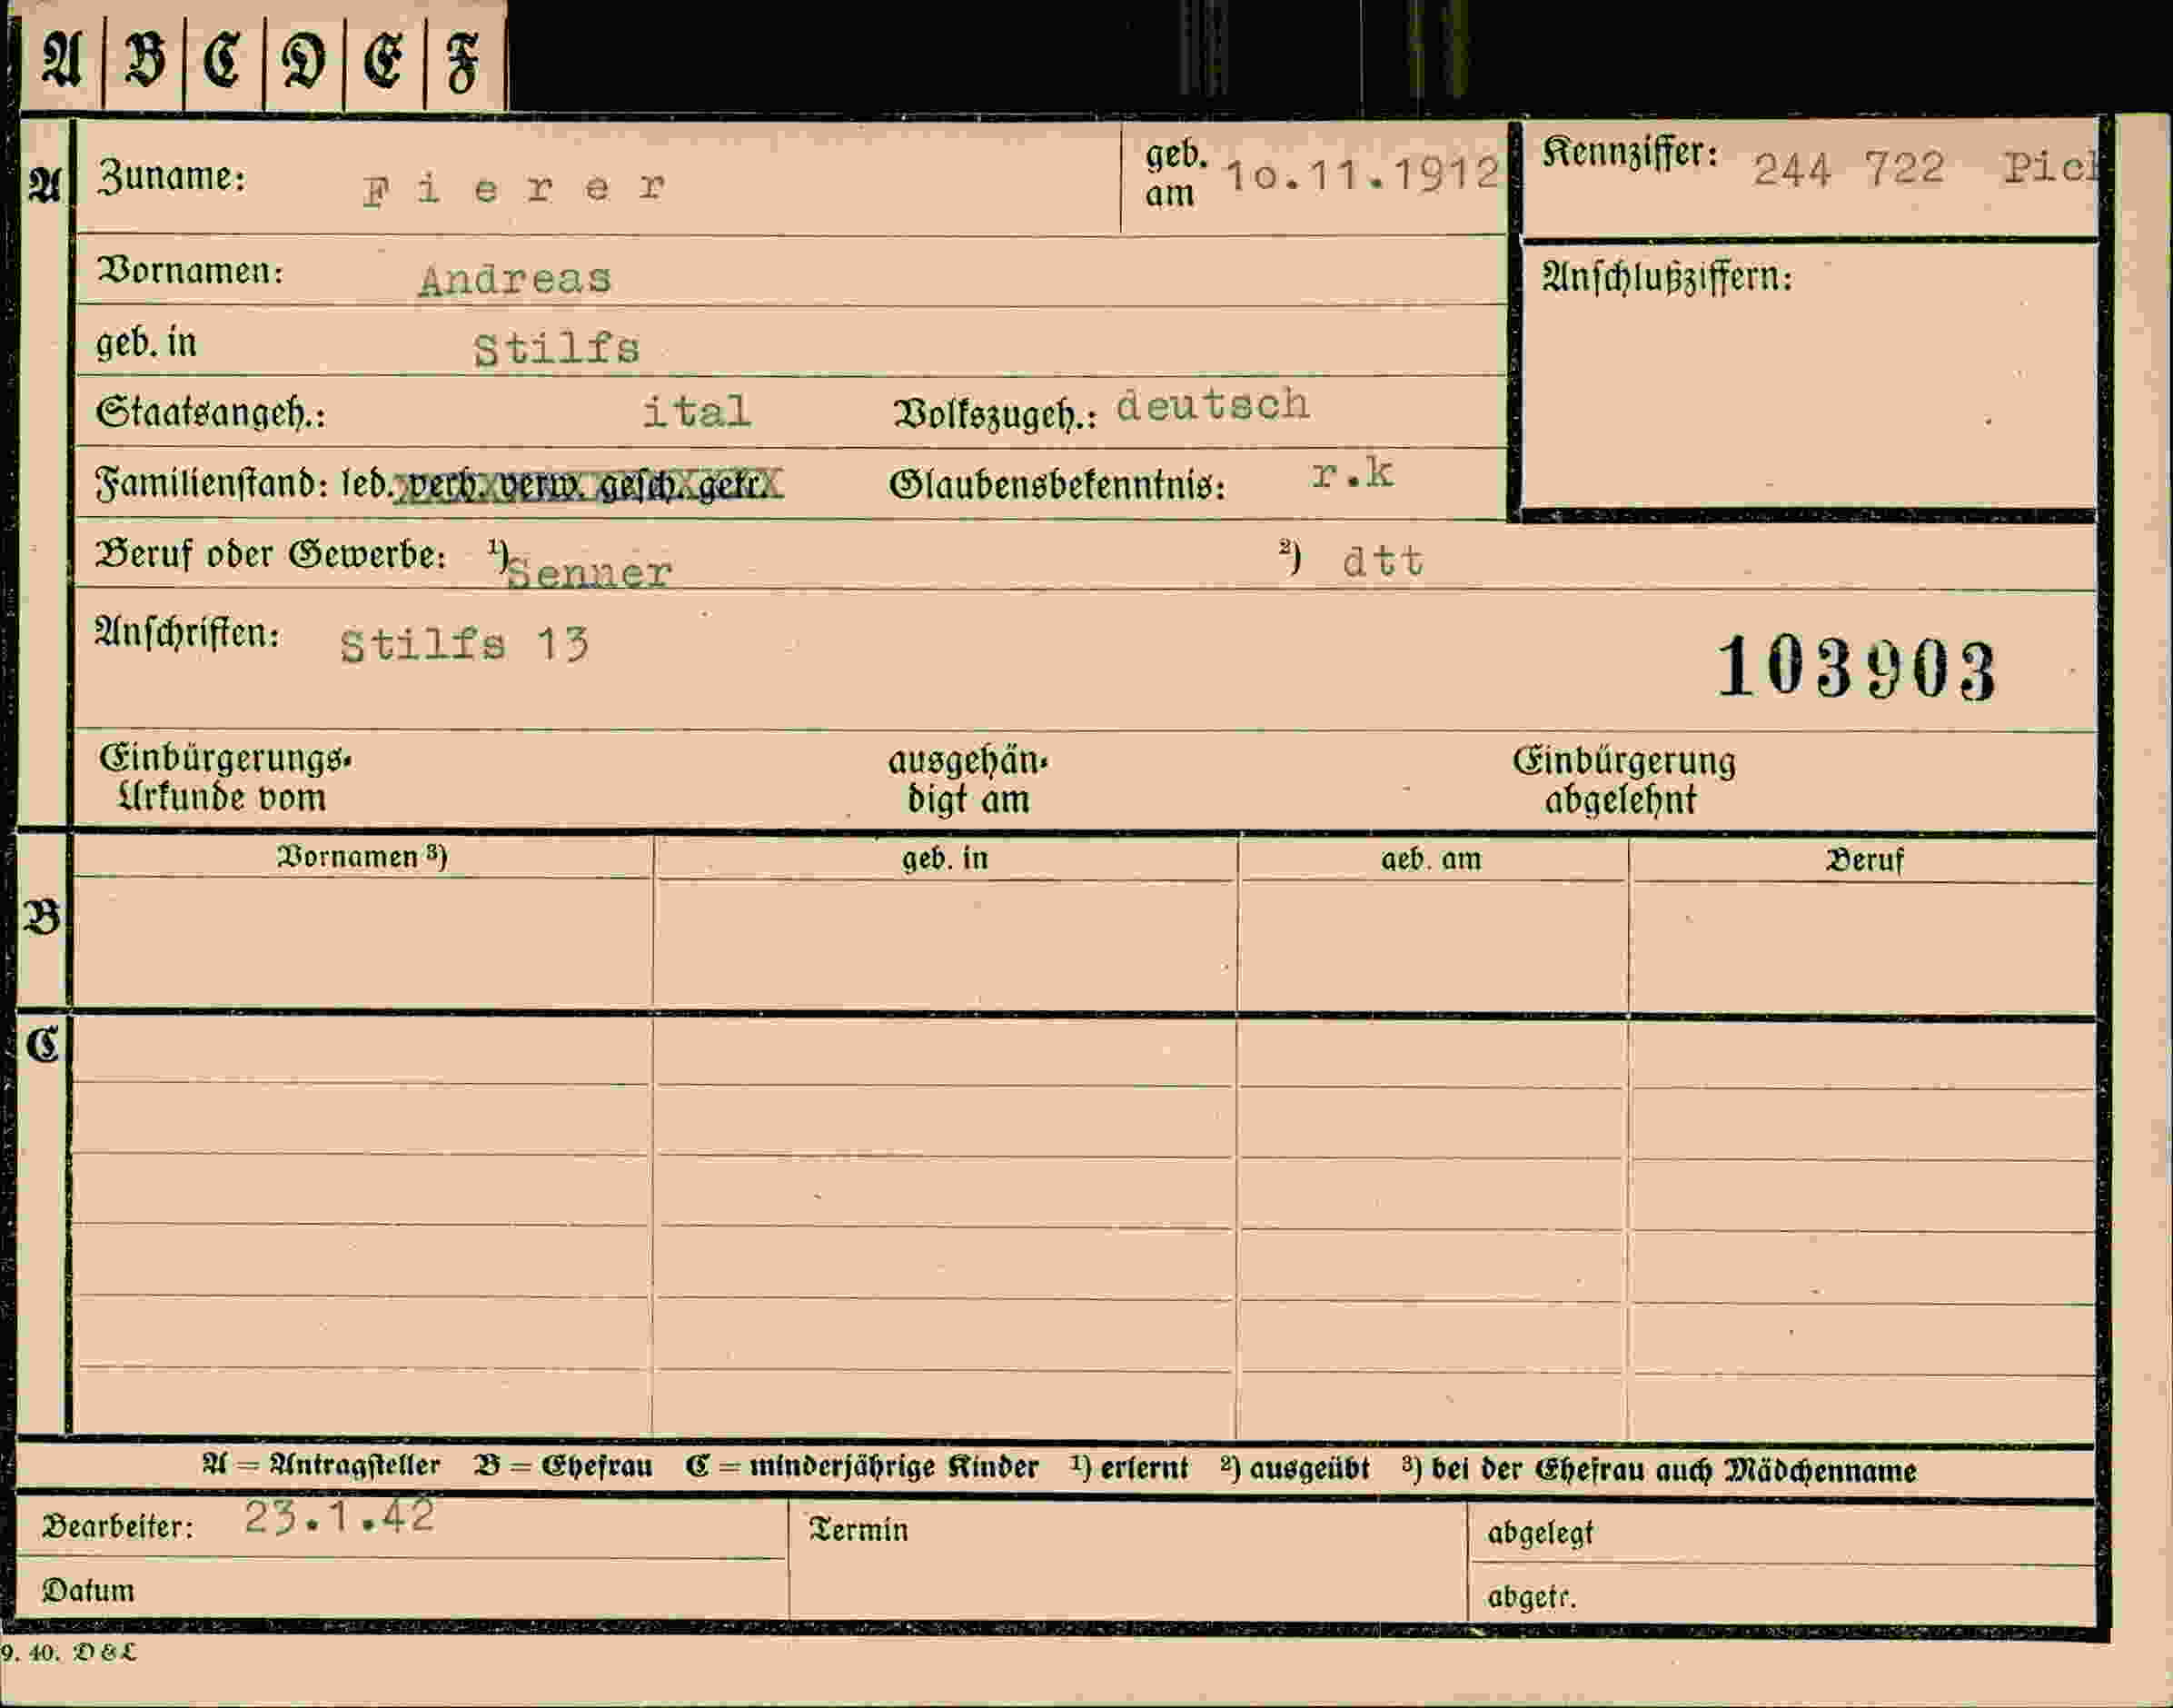 A B C D E F
A
Zuname: Fierer geb. am 10.11.1912 Kennziffer: 244 722 Pich
Vornamen: Andreas Anschlußziffern:
geb. in Stilfs
Staatsangeh.: ital Volkszugeh.: deutsch
Familienstand: led. verh. verw. gesch. getr. Glaubensbekenntnis: r.k
Beruf oder Gewerbe: ¹) Senner ²) dtt
Anschriften: Stilfs 13
103903
Einbürgerungs- ausgehän- Einbürgerung
Urkunde vom digt am abgelehnt
Vornamen ³) geb. in geb. am Beruf
B
C
A = Antragsteller B = Ehefrau C = minderjährige Kinder ¹) erlernt ²) ausgeübt ³) bei der Ehefrau auch Mädchenname
Bearbeiter: 23.1.42 Termin abgelegt
Datum abgetr.
9. 40. D & L